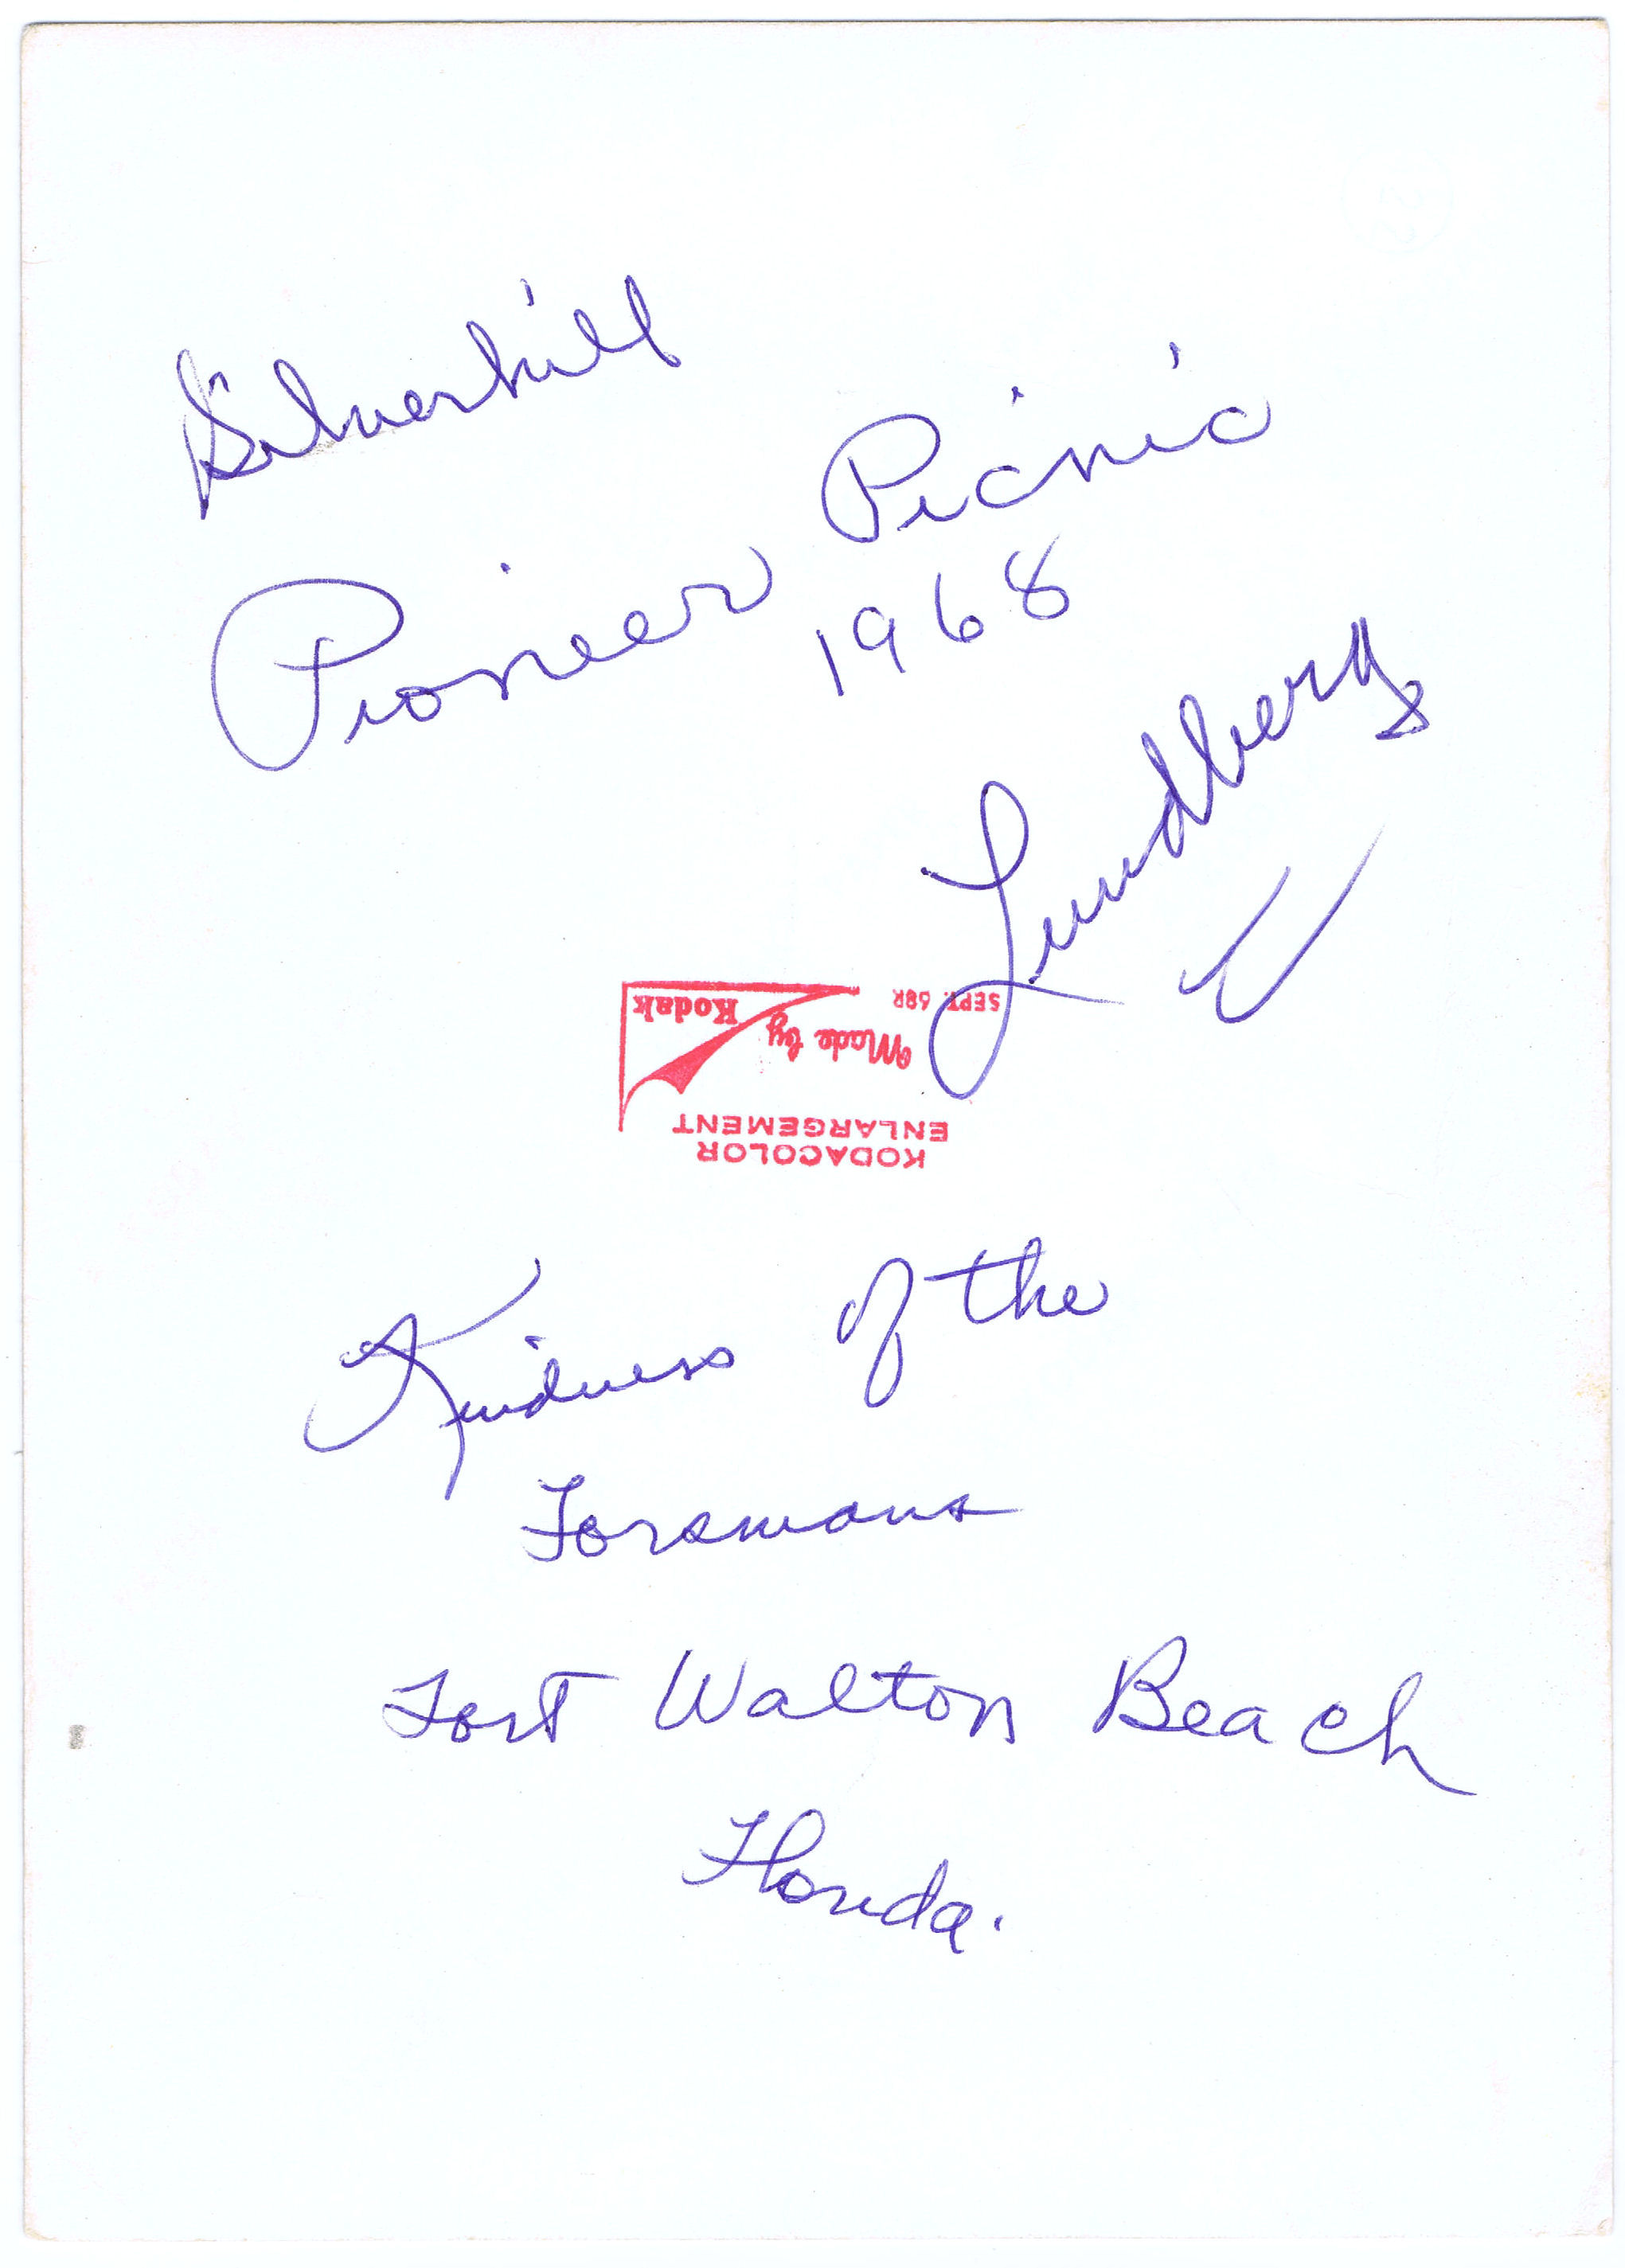 Silverhill
Pioneer Picnic
1968
Lundberg
SEPT. 68R
Kodak
Made by
ENLARGEMENT
KODACOLOR
Kindness of the
Forsmans
Fort Walton Beach
Florida.